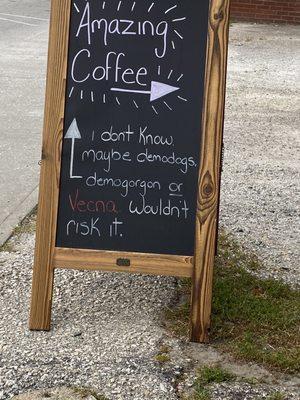 Amazing
Coffee
I don't Know.
maybe demodogs,
demogorgon or
Vecna. Wouldn't
risk it.